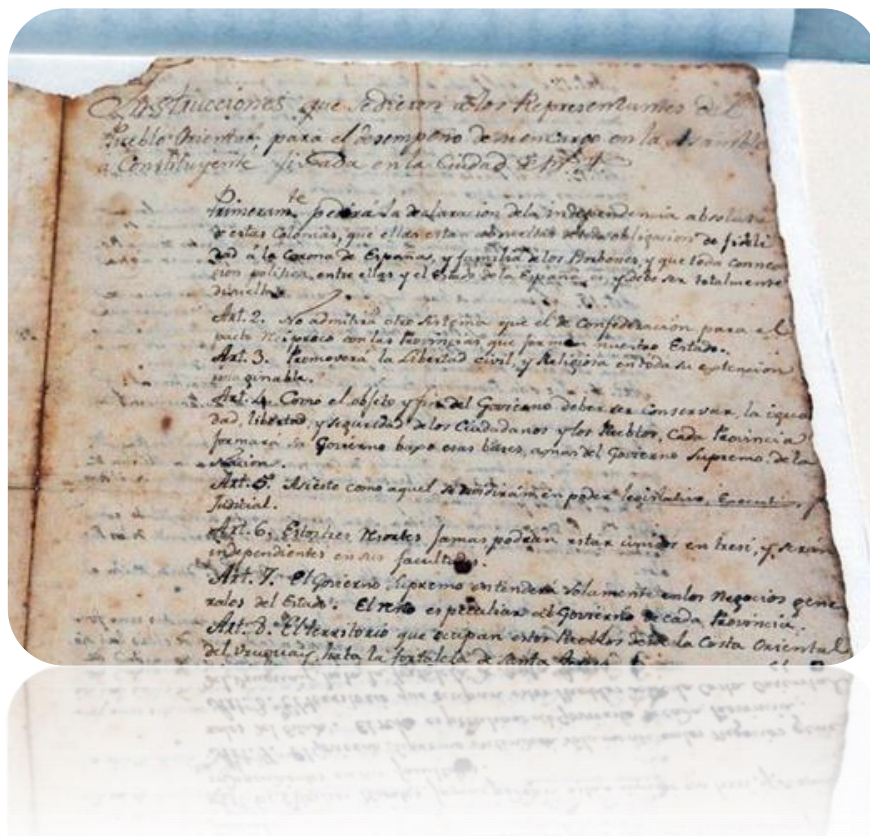 Instrucciones que se dieron a los Representantes del
Pueblo Oriental, para el desempeño de su encargo en la Asamble
a Constituyente fixada en la Ciudad de Bs. As.
Primeramte pedirá la declaracion de la independencia absoluta
de estas Colonias, que ellas estan absueltas de toda obligacion de fideli
dad á la Corona de España, y familia de los Borbones, y que toda connec
cion politica entre ellas y el Estado de la España es, y debe ser totalmente
disuelta.
Art. 2. No admitirá otro Sistema que el de Confederacion para el
pacto reciproco con las Provincias que formen nuestro Estado.
Art. 3. Promoverá la Libertad civil, y Religiosa en toda su extencion
imaginable.
Art. 4. Como el objeto y fin del Govierno deber ser conservar, la igual
dad, libertad, y seguridad de los Ciudadanos y los Pueblos, Cada Provincia
formará su Govierno bajo esas bases, a mas del Govierno Supremo de la
Nacion.
Art. 5. Asi este como aquel se dividirán en poder legislativo, Executivo, y
Judicial.
Art. 6. Estos tres Resortes jamas podrán estar unidos entre sí, y serán
independientes en sus facultades.
Art. 7. El Govierno Supremo entenderá solamente en los Negocios gene
rales del Estado. El resto es peculiar al Govierno de cada Provincia.
Art. 8. El territorio que ocupan estos Pueblos desde la Costa Oriental
del Uruguay, hasta la fortaleza de Santa Teresa